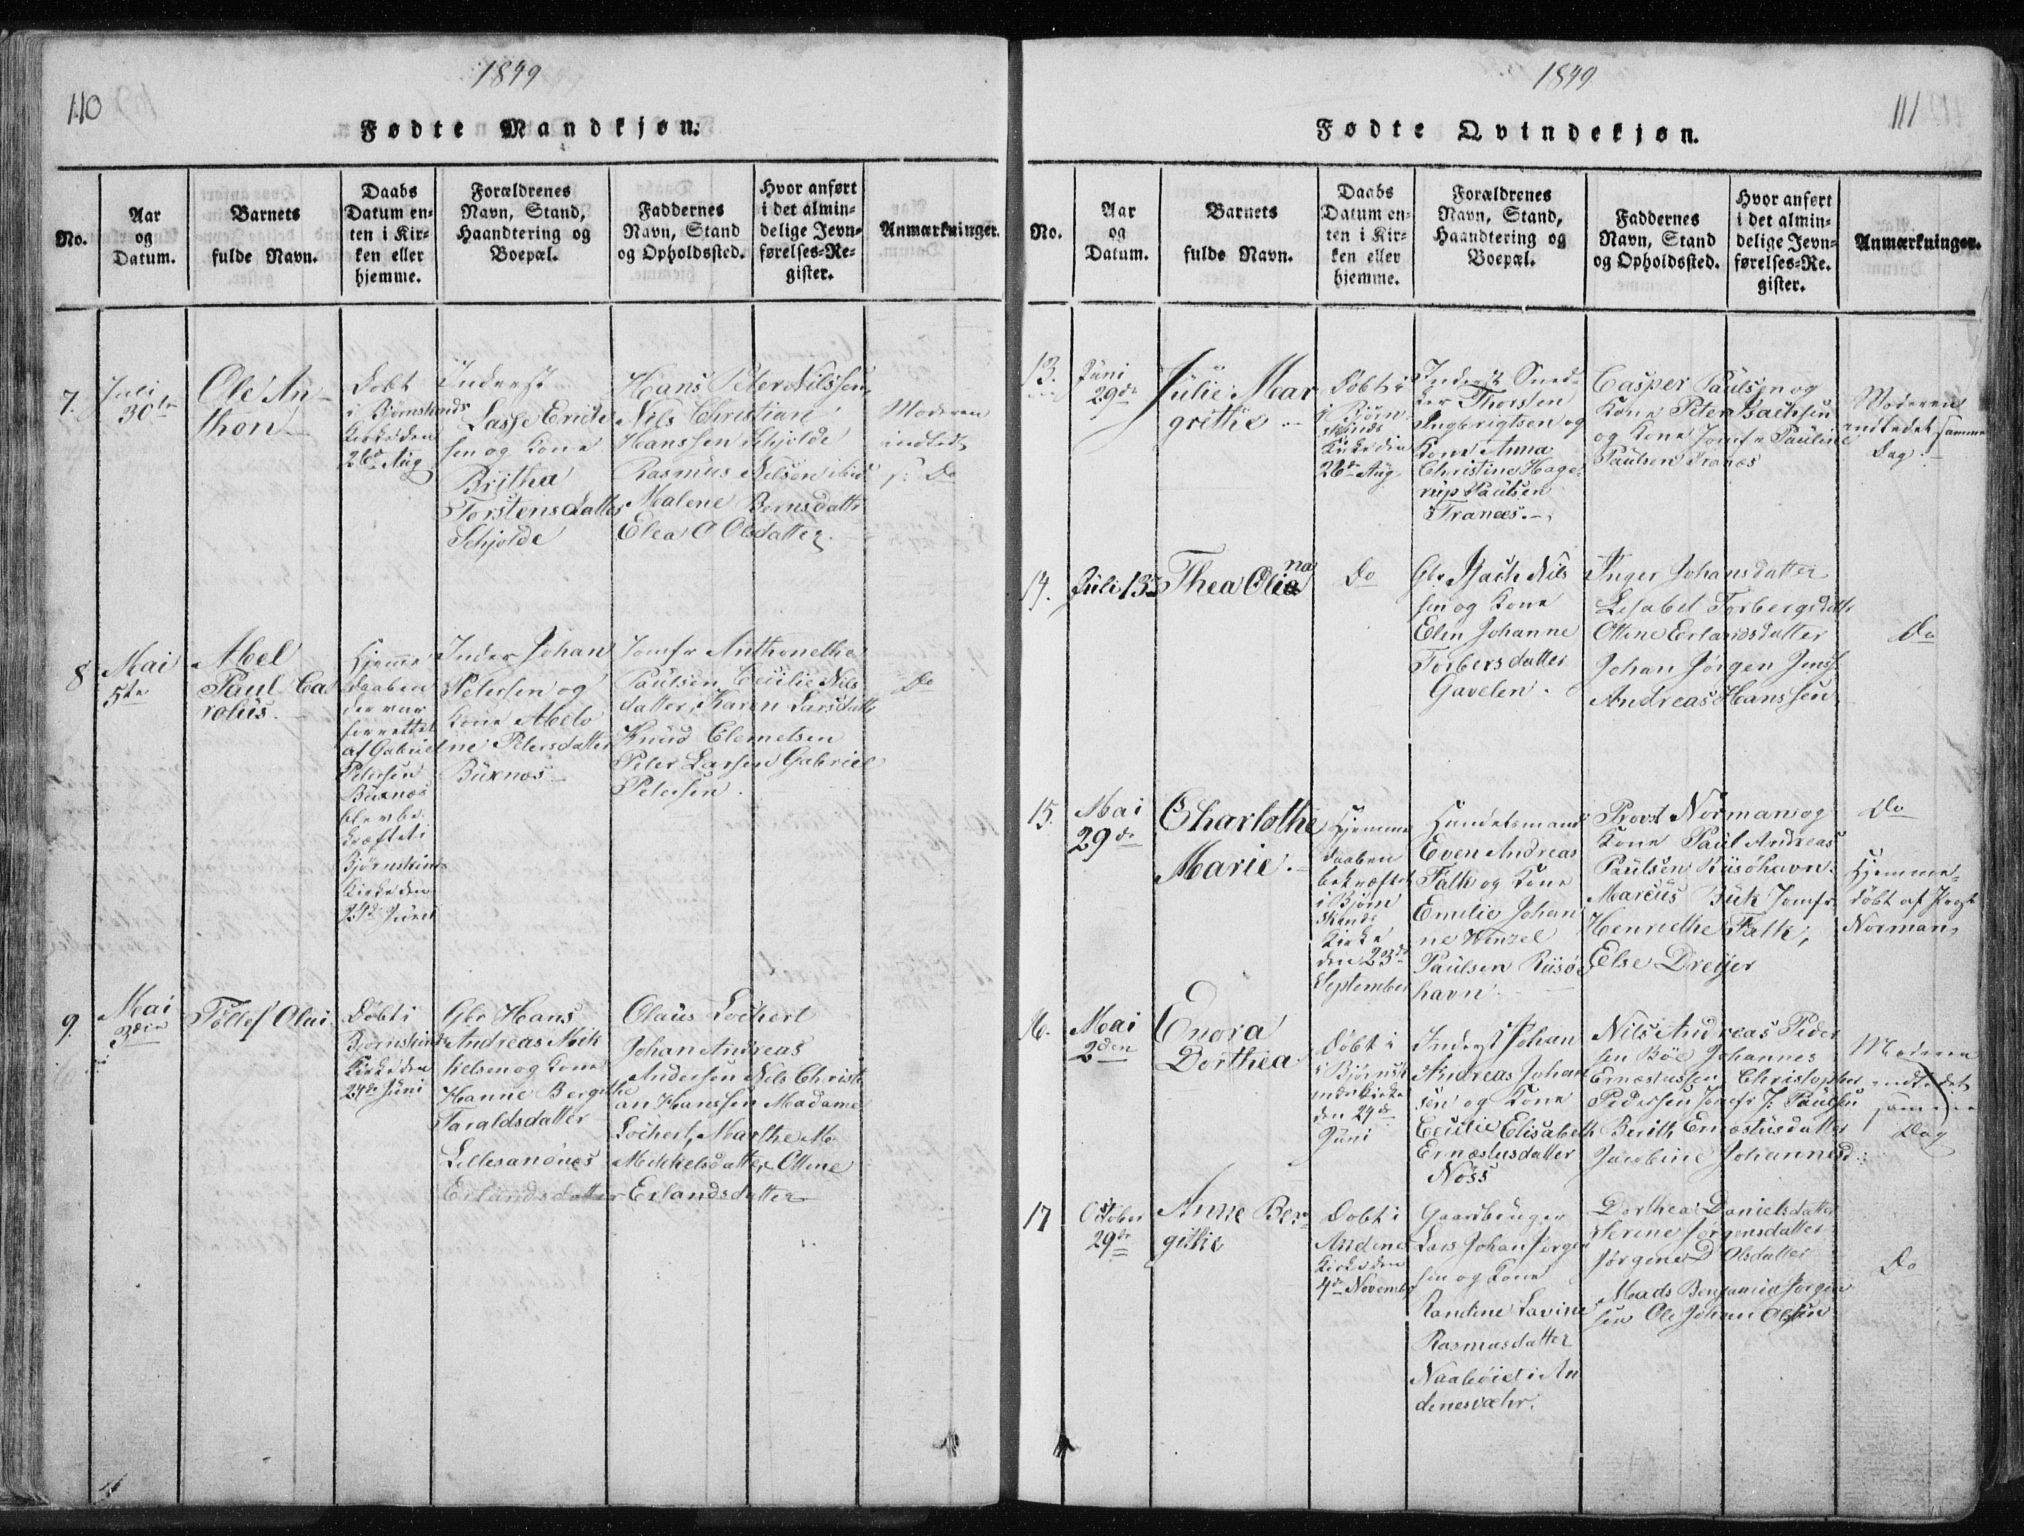 110
1849
Fødte Mandkjøn.
No.
Aar
og
Datum.
Barnets
fulde Navn.
Daabs
Datum en-
ten i Kir-
ken eller
hjemme.
Forældrenes
Navn, Stand,
Haandtering og
Boepæl.
Faddernes
Navn, Stand
og Opholdssted.
Hvor anført
i det almin-
delige Jevn-
førelses-Re-
gister.
Anmærkninger.
7.
Juli
30te
Ole An
thon
Døbt
i Bjørnskinds
Kirke den
26de Aug
Inderst
Lasse Erich
sen og Kone
Britha
Torstensdatter
Schjolde
Hans Peter Nilssen,
Nils Christian
Hanssen Schjolde
Rasmus Nelson ibid
Malene Bernsdattr
Elea O Olsdatter.
Moderen
indledt
s: Do
8
Mai
5te
Abel
Paul Ca
rolus.
Hjemme
daaben
der var
forrettet
af Gabriel
Petersen
Buknæs
blev be
kræftet i
Bjørnskinds
Kirke den
24de Juni
Inder Johan
Petersen og
Kone Abelo
ne Petersdatter
Buknæs
Jomfr Anthonethe
Paulsen, Cecilie Nils
datter, Karen Larsdattr
Knud Clemetsen
Peter Larsen Gabriel
Petersen.
Do
9.
Mai
3den
Tollef Olai
Døbt i
Bjørnskinds
Kirke den
24de Juni
Gbr Hans
Andreas Mik
kelsen og Kone
Hanne Bergithe
Taraldsdatter
Lillesanønes
Erlandsdatter
Olaus Lochert
Johan Andreas
Andersen Nils Christi
an Hanssen Madame
Lochert, Marthe M
Mikkelsdatter Ottine
Erlandsdatter
111
1849
Fødte Qvindekjøn.
No.
Aar
og
Datum.
Barnets
fulde Navn.
Daabs
Datum en-
ten i Kir-
ken eller
hjemme.
Forældrenes
Navn, Stand,
Haandtering og
Boepæl.
Faddernes
Navn, Stand
og Opholdssted.
Hvor anført
i det almin-
delige Jevn-
førelses-Re-
gister.
Anmærkninger.
13.
Juni
29de
Julie Mar
grethe
Døbt i
Bjørn
skinds
Kirke den
26de Aug
Inderst Sned-
ker Thorsten
Ingbrigtsen og
Kone Anna
Christine Hage-
rup Paulsen
Tranæs.
Casper Paulsen og
Kone Peter Isachsen
og Kone Jomfr Pauline
Paulsen Tranæs
Moderen
indledet samme
Dag.
14.
Juli 13de
Thea Olia
na
Do
Gbr Isach Nils
sen og Kone
Elen Johanne
Torbersdatter
Gavelen.
Inger Johansdatter
Lisabet Torbergsdattr
Ottine Erlandsdatter
Johan Jørgen Jenss.
Andreas Hanssen
Do
15.
Mai
29de
Charlothe
Marie.
Hjemme
daaben
bekræftet
i Bjørn
skinds
Kirke
den 23de
September
Handelsmand
Even Andreas
Falk og Kone
Emilie Johan
ne Winzel
Paulsen Risø
havn
Provst Norman og
Kone Paul Andreas
Paulsen Risøhavn
Marcus Buk Jomfr
Henriethe Falk,
Else Dreyer
Do
Hjemme-
døbt af Provst
Norman,
16.
Mai
2den
Enora
Dorthea
Døbt i
Bjørnsk
inds Kirke
den 24de
Juni
Inderst Johan
Andreas Johan
sen og Kone
Cecilie Elisabeth
Ernæstusdatter
Nøss
Nils Andreas Peder
sen Böe Johannes
Ernæstussen, Christopher
Pedersen Jomfr J: Paulsen
Berith Ernæstusdatter
Jacobine Johannesd:
Moderen
indledet
samme
Dag
17
October
29de
Anne Ber
githe
Døbt i
Andenes
Kirke den
4de Novembr
Gaardbruger
Lars Johan Jørgen
sen og Kone
Randine Lavine
Rasmusdatter
Naahöiet i An
denesvæhr.
Dorthea Danielsdatter
Serine Jørgensdatter
Jørgine D Olsdatter
Mads Benjamin Jørgen
sen Ole Johan Olsen
Do